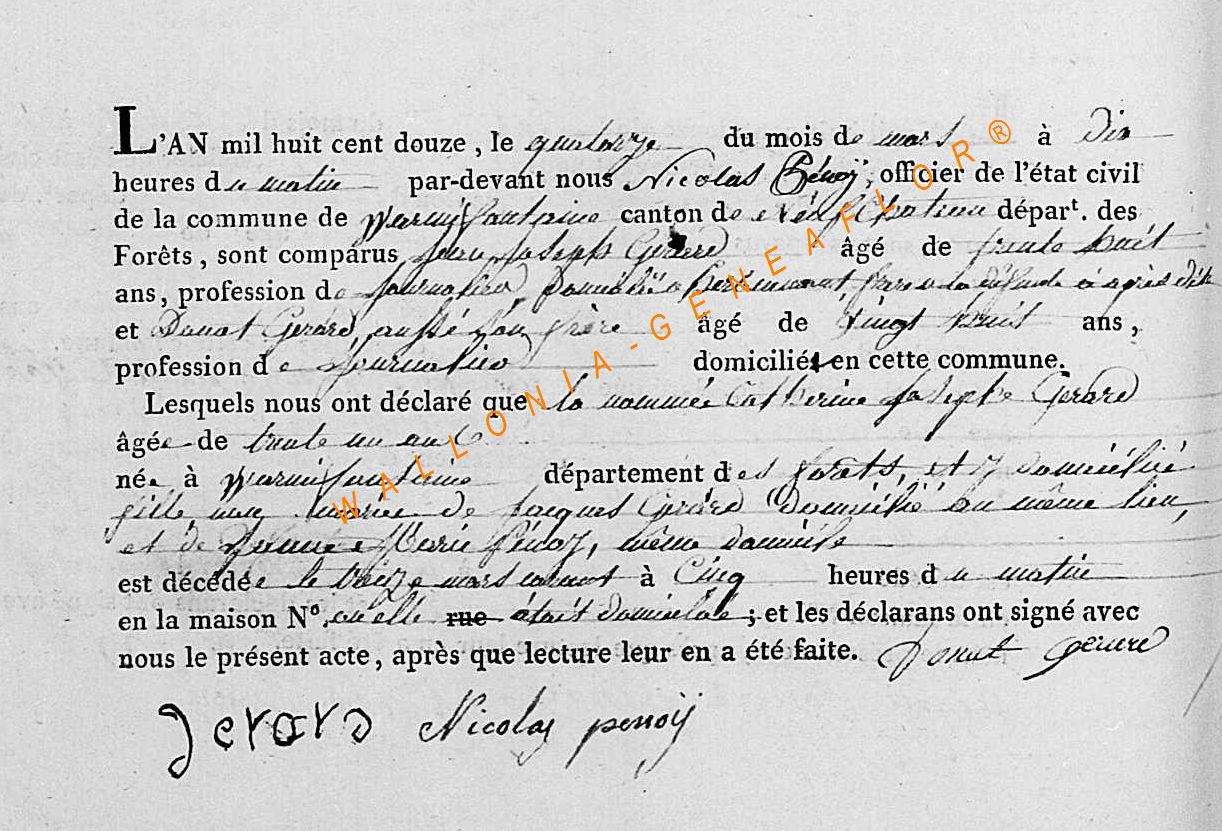 L'AN mil huit cent douze, le quatorze du mois de mars à dix
heures du matin par-devant nous Nicolas Pénoÿ, officier de l'état civil
de la commune de Warmifontaine canton de Neufchateau départ. des
Forêts, sont comparus Jean Joseph Gerard âgé de trente huit
ans, profession de journalier, Domicilié a frere a la défunte ci après dite
et Donat Gerard, aussi son frère âgé de vingt huit ans,
profession de journalier domiciliés en cette commune.
Lesquels nous ont déclaré que la nommée Catherine Joseph Gerard
âgée de trente un ans
née à Warmifontaine département des forets, et y domiciliée
fille non mariée de Jacques Gerard Domicilié au même lieu,
et de Jeanne Marie Pénoÿ, même domicile
est décédée le treize mars courant à Cinq heures du matin
en la maison N.° où elle rue était domiciliée; et les déclarans ont signé avec
nous le présent acte, après que lecture leur en a été faite. Donat gerard
gerard Nicolas penoÿ
WALLONIA-GENEAFLOR®